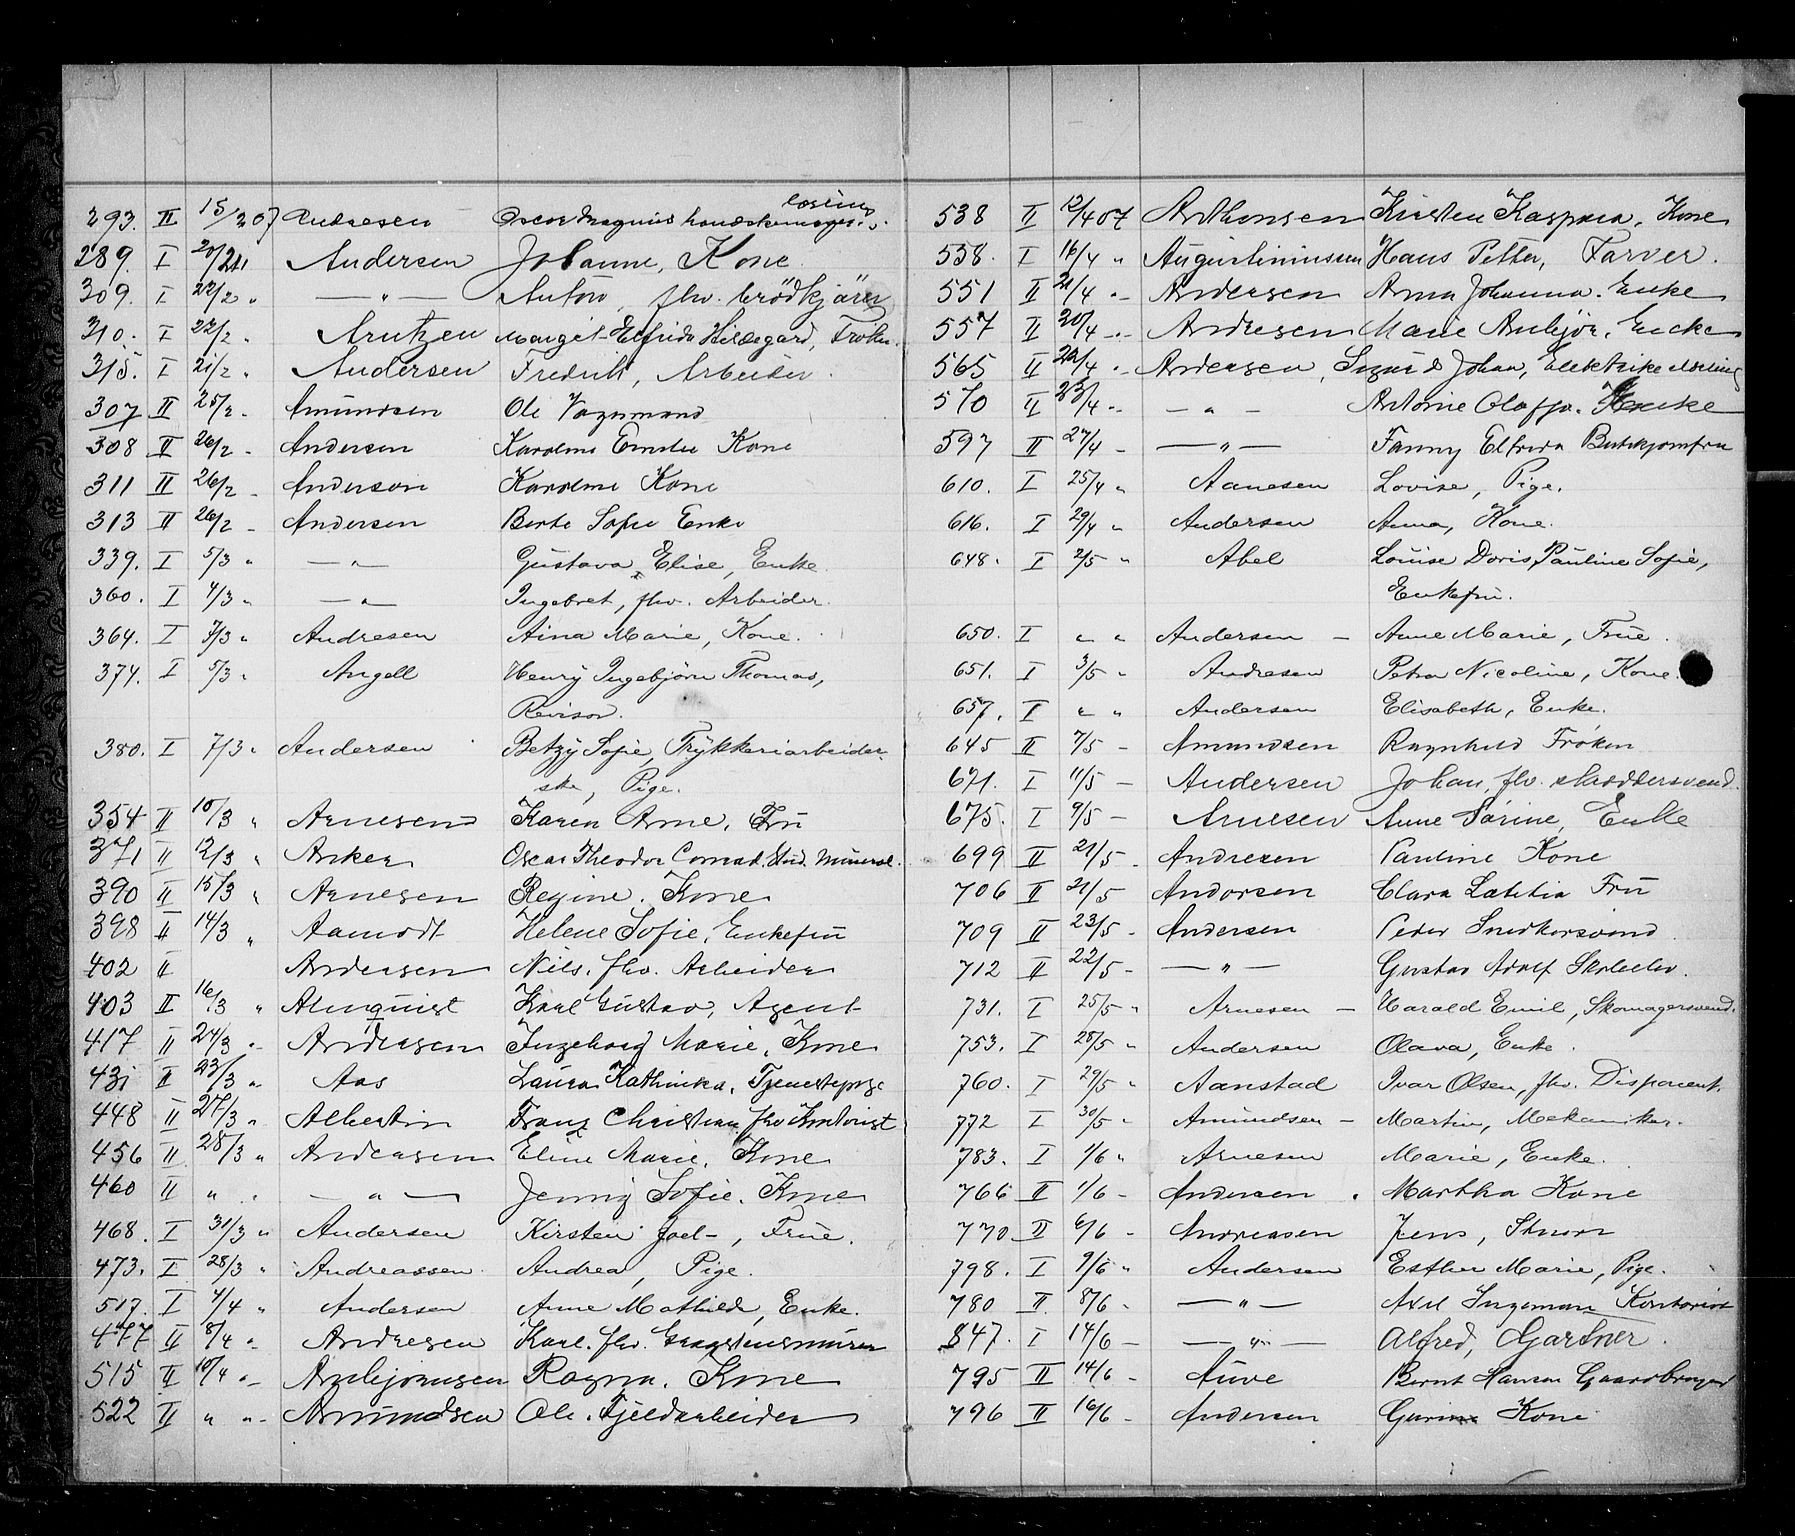 293. II 15/2 07 Andresen Oscar Magnus handskemager
289. I 20/2 " Andersen Johanne, Kone
309. I 22/2 " — " — Anton, fhv. brödkjörer
310. I 22/2 " Arntzen Margit Elfrida Hildegard, Frøken.
315. I 21/2 " Andersen Fredrik, Arbeider.
307 II 25/2 - Amundsen Ole Vognmand
308 II 26/2 - Andersen Karoline Emilie Kone
311 II 26/2 - Anderson Karoline Kone
313 II 26/2 - Andersen Berte Sofie Enke
339. I 5/3 " — " — Gustava Elise, Enke.
360. I 4/3 " — " — Ingebret, fhv. Arbeider.
364. I 7/3 " Andresen Aina Marie, Kone.
374. I 5/3 " Angell Henry Ingebjörn Thomas,
Revisor.
380. I 7/3 " Andersen Betzy Sofie, Trykkeriarbeider-
ske, Pige.
354 II 10/3 " Arnesen Karen Arne, Fru
371 II 12/3 " Anker Oscar Theodor Conrad. Stud. Mineral.
390 II 15/3 " Arnesen Regine. Kone
398 II 14/3 " Aamodt Helene Sofie. Enkefru
402 II Andersen Nils. fhv. Arbeider
403 II 16/3 " Almquist Karl Gustav, Agent
417 II 24/3 " Andersen Ingeborg Marie, Kone
431 II 23/3 " Aas Laura Kathinka, Tjenestepige
448 II 27/3 " Albertin Franz Christian fhv Kontorist
456 II 28/3 " Andersen Eline Marie. Kone
460 II " " — " — Jenny Sofie. Kone
468. I 31/3 " Andersen Kirsten Joel-, Frue.
473. I 28/3 " Andreassen. Andrea, Pige.
517. I 4/4 " Andersen Anne Mathilde, Enke.
477 II 8/4 " Andresen Karl. fhv. Graastensmurer
515 II 10/4 " Arnbjørnsen Ragna. Kone
522 II " " Amundsen Ole. Fjeldarbeider
538 II 12/4 07 Anthonsen Kirsten Kaspara. Kone
538. I 16/4 " Augustiniussen Hans Petter, Farver.
551 II 21/4 " Andersen Anna Johanna. Enke
557 II 20/4 " Andresen Marie Anbjør, Encke
565 II 22/4 " Andersen, Sigurd Johan,
570 II 23/4 " — " — Antonie Olaffa. Encke
597 II 27/4 - — " — Fanny Elfrida Butikjomfru
610. I 25/4 " Aanesen Lovise, Pige.
616. I 29/4 " Andersen Anna, Kone.
648. I 2/5 " Abel Louise Doris Pauline Sofie,
Enkefru.
650. I " " Andersen — Anne Marie, Frue.
651. I 3/5 " Andresen Petra Nicoline, Kone.
657. I " " Andersen Elisabeth, Enke.
645 II 7/5 - Amundsen Ragnhild Frøken
671. I 11/5 - Andersen Johan, fhv. skræddersvend.
675. I 9/5 - Arnesen Anne Sørine, Enke
699 II 21/5 - Andresen Pauline Kone
706 II 21/5 Andersen Clara Lætitia Fru
709 II 23/5 - Andersen Peder Snedkersvend
712 II 22/5 - — " — Gustav Adolf Skoleelev.
731. I 25/5 " Arnesen — Harald Emil, Skomagersvend.
753. I 28/5 " Andersen Olava, Enke.
760. I 29/5 " Aanstad Ivar Olsen, fhv. Disponent.
772 I 30/5 " Amundsen — Martin, Mekaniker.
783. I 1/6 " Arnesen Marie, Enke.
766 II 1/6 - Andersen Martha Kone
770 II 6/6 - Andreassen Jens, Skuor
798. I 9/6 " Andersen Esther Marie, Pige.
780 II 8/6 - — " — Axel Ingeman Kontorist
847. I 14/6 - — " — Alfred, Gartner.
795 II 14/6 - Auve Bernt Hansen Gaardbruger
796 II 16/6 - Andersen Gurine Kone